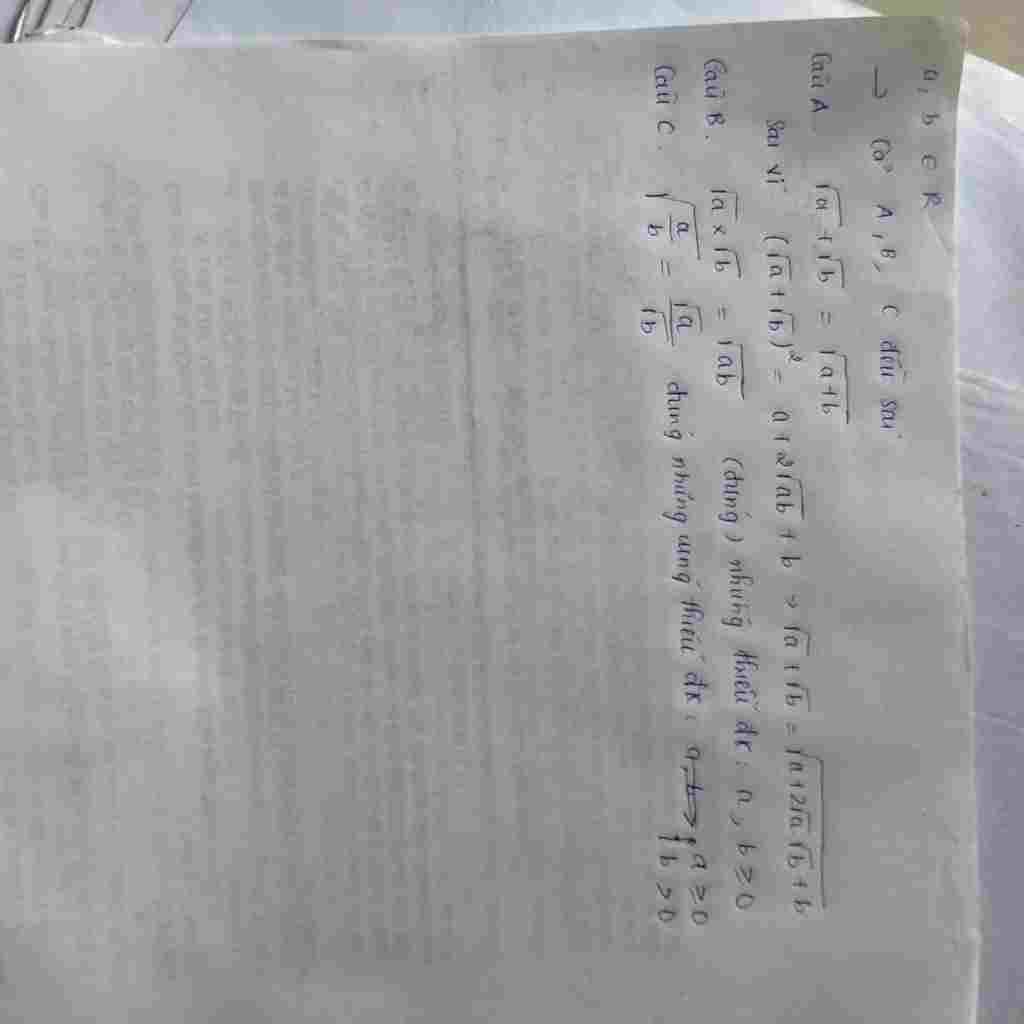 a, b ∈ R
→ Cả A, B, C đều sai
Câu A √a + √b = √(a+b)
Sai vì (√a + √b)² = a + 2√ab + b → √a + √b = √(a+2√a√b+b)
Câu B. √a × √b = √ab (đúng) nhưng thiếu đk: a, b ≥ 0
Câu C. √(a/b) = √a/√b đúng nhưng cũng thiếu đk: { a ≥ 0
b > 0